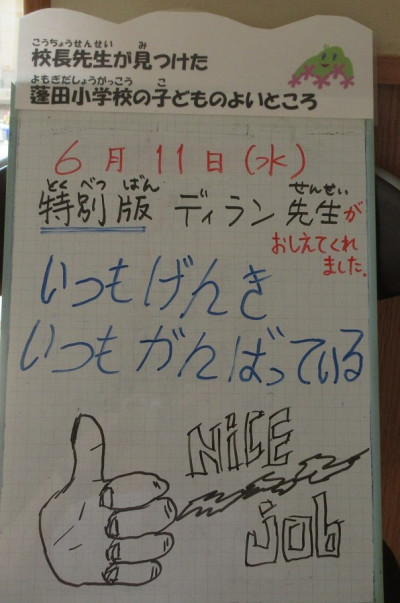 こうちょうせんせい み
校長先生が見つけた
よもぎだしょうがっこう こ
蓬田小学校の子どものよいところ
6月11日(水)
とくべつばん せんせい
特別版 ディラン先生が
おしえてくれ
ました.
いつもげんき
いつもがんばっている
NiCE
job